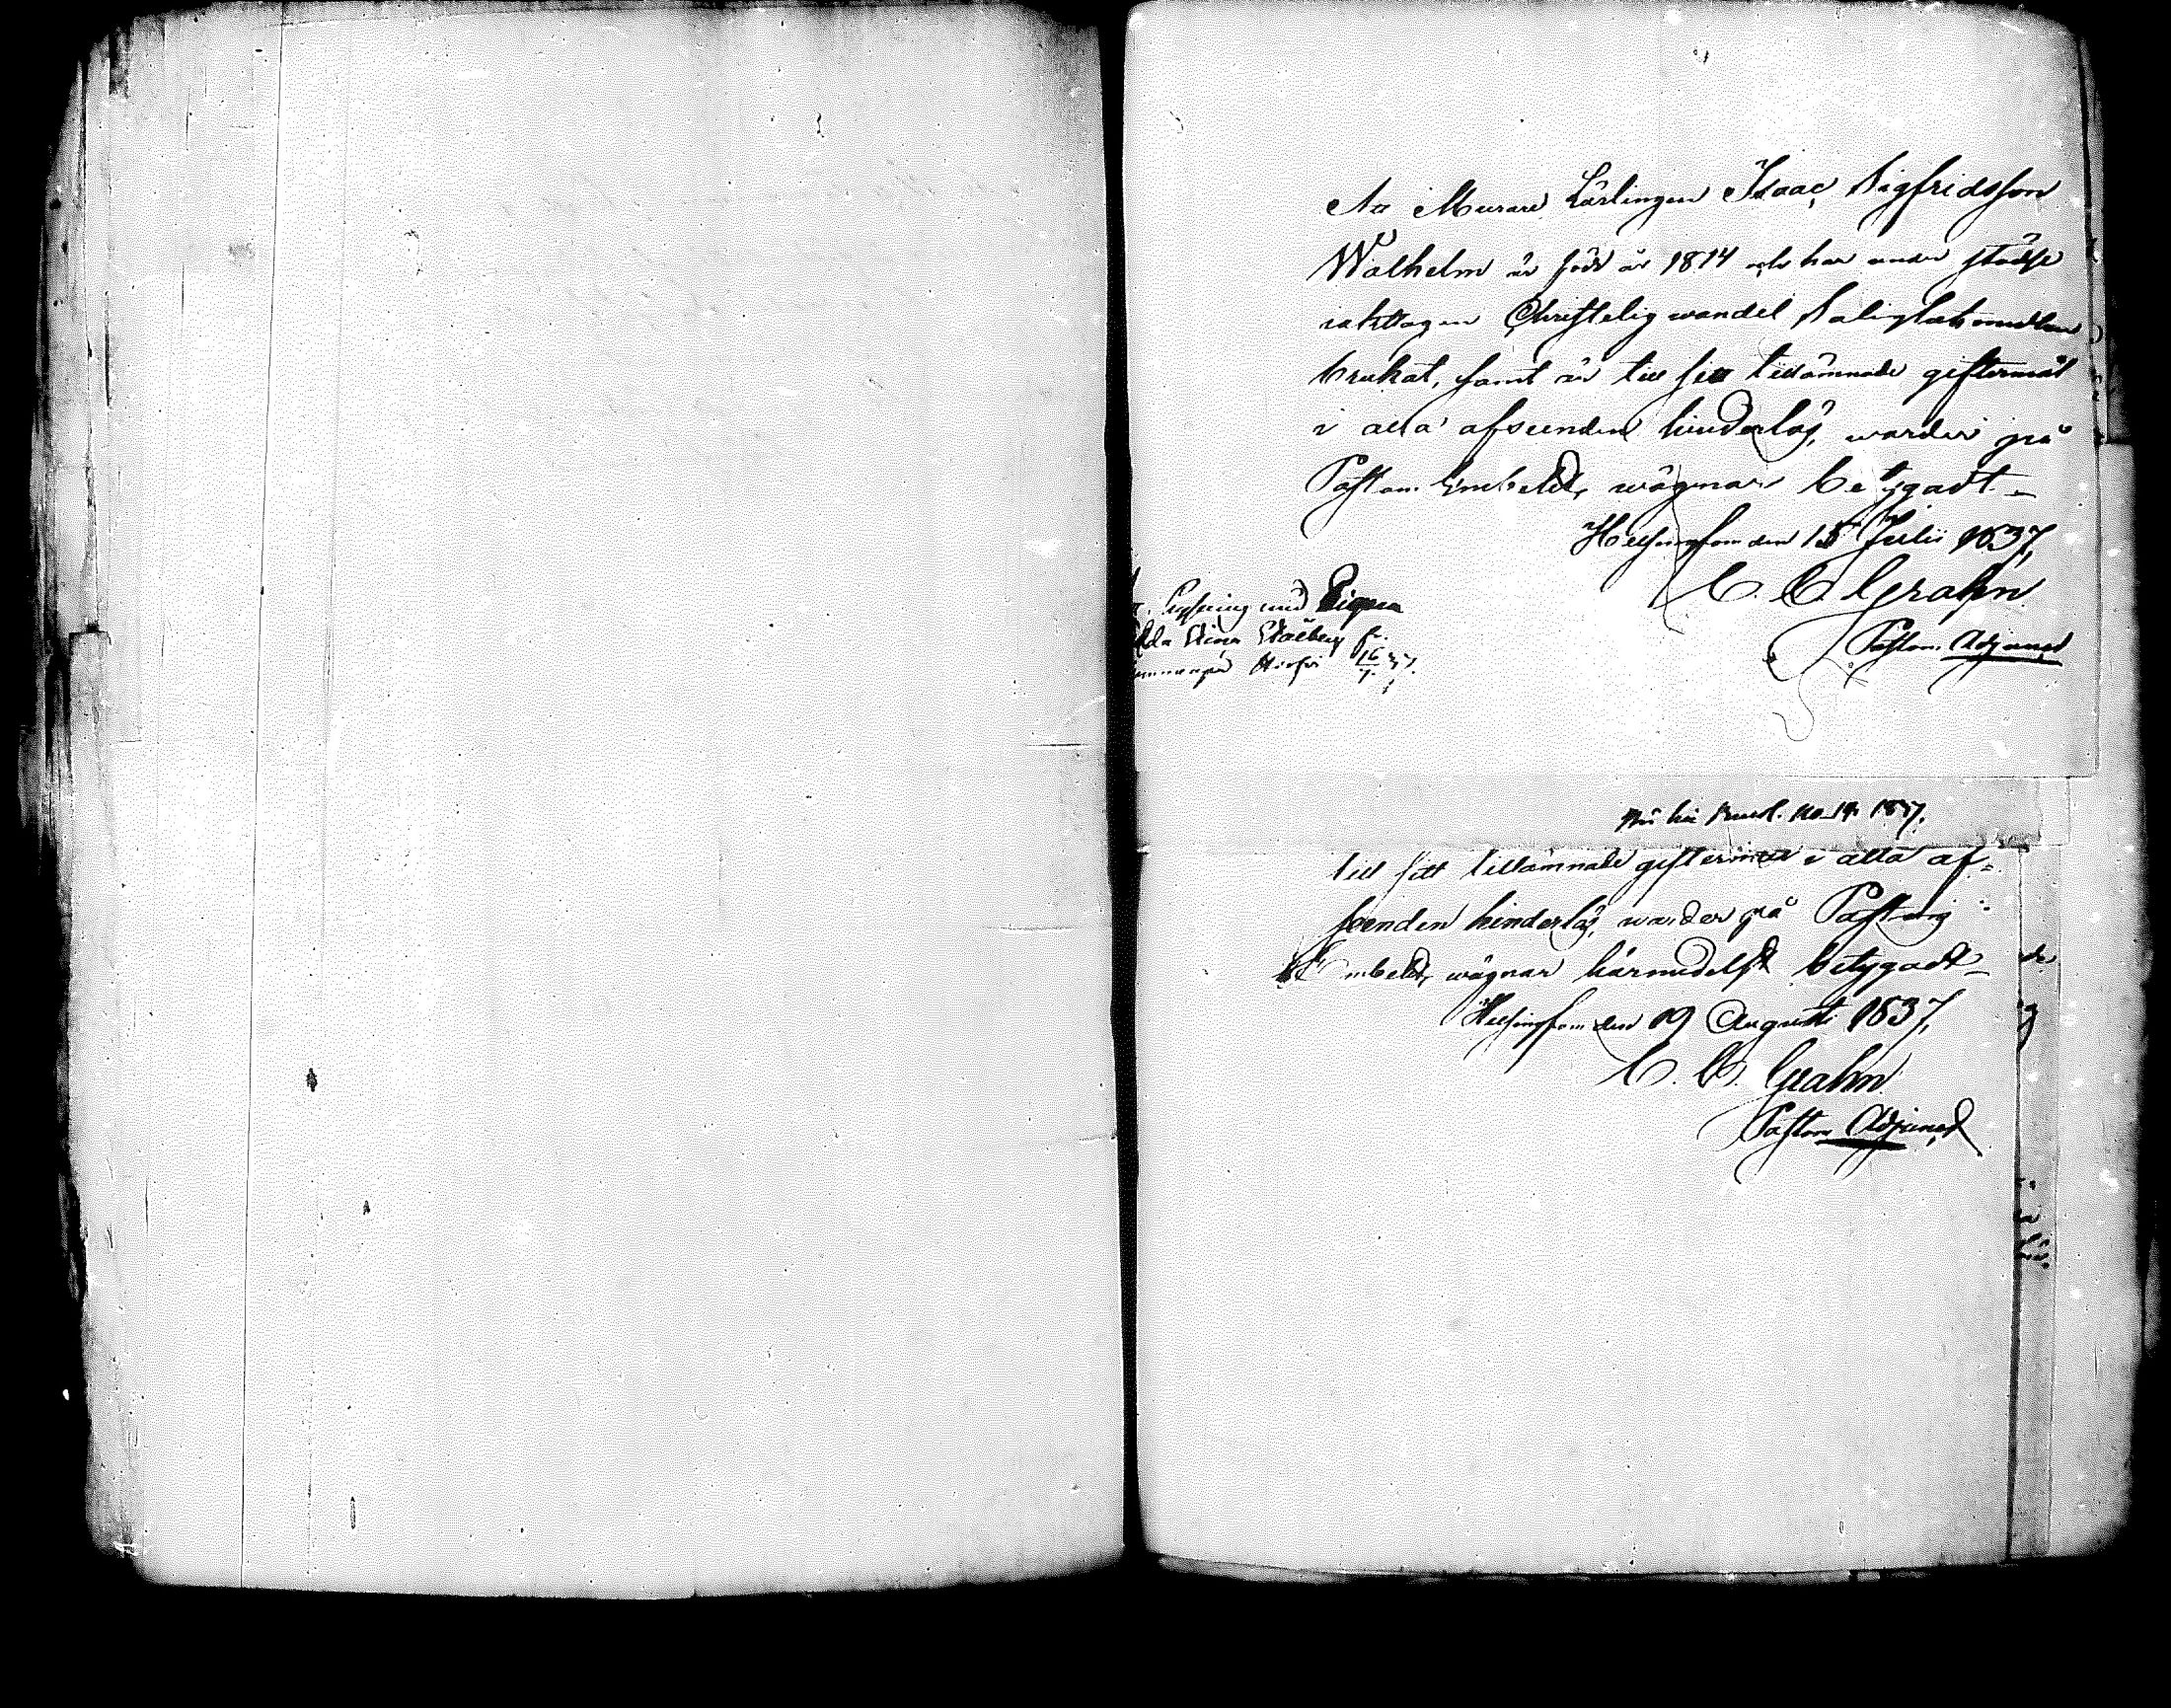 Att Murare Lärlingen Isaac Sigfridsson
Walhelm är född år 1814 och har under städse
iakttagen Christelig wandel Salighetsmedlen
brukat, samt är till sitt tillämnade giftermål
i alla afseenden hinderlös, warder på
Pastors Embetets wägnar betygadt –
Helsingfors den 15 Julii 1837,
C. C. Grahn
Pastors Adjunct
Lysning med Pigan
Stina
16/7 37.
1837.
till sitt tillämnade giftermål i alla af=
seenden hinderlös, warder på Pastors
Embetets wägnar härmedelst betygadt –
Helsingfors den 19 Augusti 1837,
C. C. Grahn
Pastors Adjunct